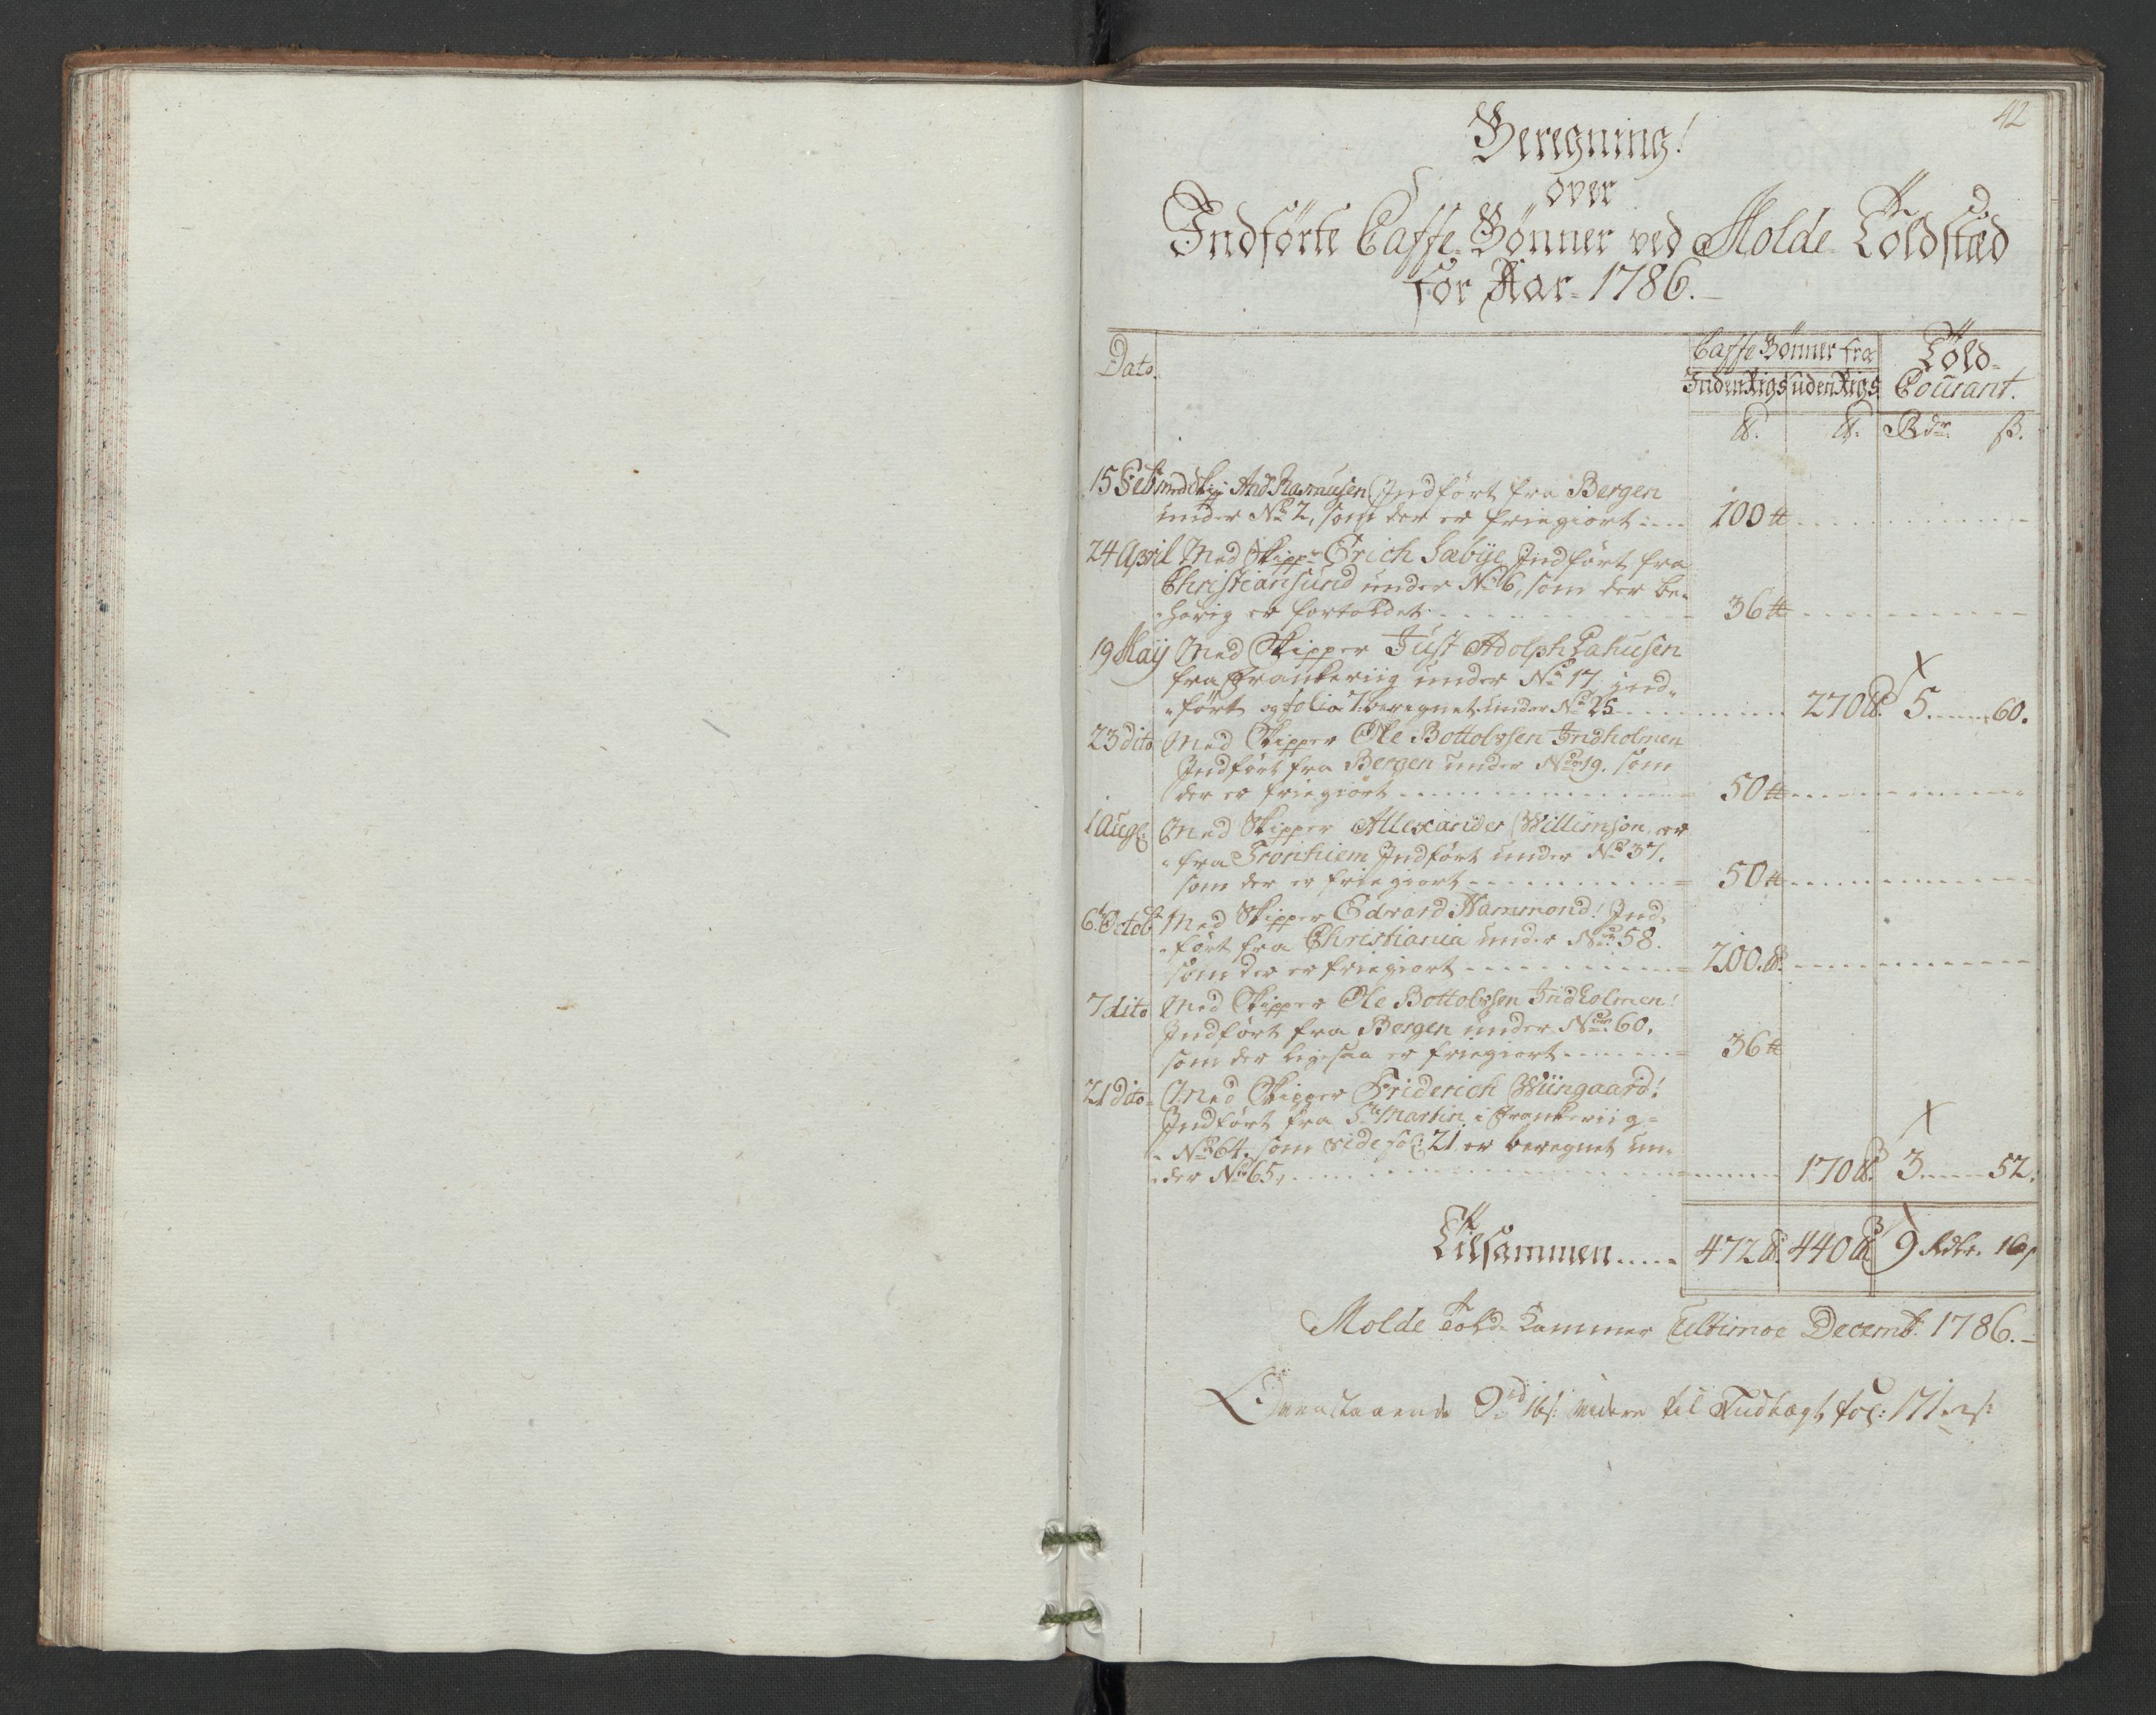 42
Beregning!
over
Indførte Caffe-Bønner ved Molde Toldstæd
for Aar 1786.
Dato.
Caffe Bønner fra
Told-
IndenRigs udenRigs
Courant.
℔. ℔. Rdr. ß.
15 Feb: med Skip And Rasmusen Indført fra Bergen
under No 2, som der er friegiort 100 ℔
24 April Med Skipp Erich Sæbye Indført fra
Christiansund under No 6, som der be-
hørig er fortoldet 36 ℔
19 Maij Med Skipper Just Adolph Lahusen
fra Frankeriig under No 17 ind-
ført og folio 7 beregnet under No 25 270 ℔. 5 60.
23 dito Med Skipper Ole Bottolvsen Indholmen
Indført fra Bergen under No 19. som
der er friegiort 50 ℔
1 Aug: Med Skipper Allexander Willimson er
fra Tronhiem Indført under No 37.
som der er friegiort 50 ℔
6t Octob Med Skipper Edvard Hammond! Ind-
ført fra Christiania under No 58.
som der er friegiort 200. ℔.
7 dito Med Skipper Ole Bottolvsen Indholmen!
Indført fra Bergen under No 60.
som der ligesaa er friegiort 36 ℔
21 dito Med Skipper Friderich Wiingaard!
Indført fra St Martin i Frankeriig
No 64. som side fol: 21 er beregnet un-
der No 65, 170 ℔. 3 52.
Tilsammen 472 ℔. 440 ℔ 9 Rdr. 16 ß
Molde Told-Kammer Ultimoe Decemb: 1786.
Ovenstaaende 9 rd 16 ß: videre til Indtægt fol: 171